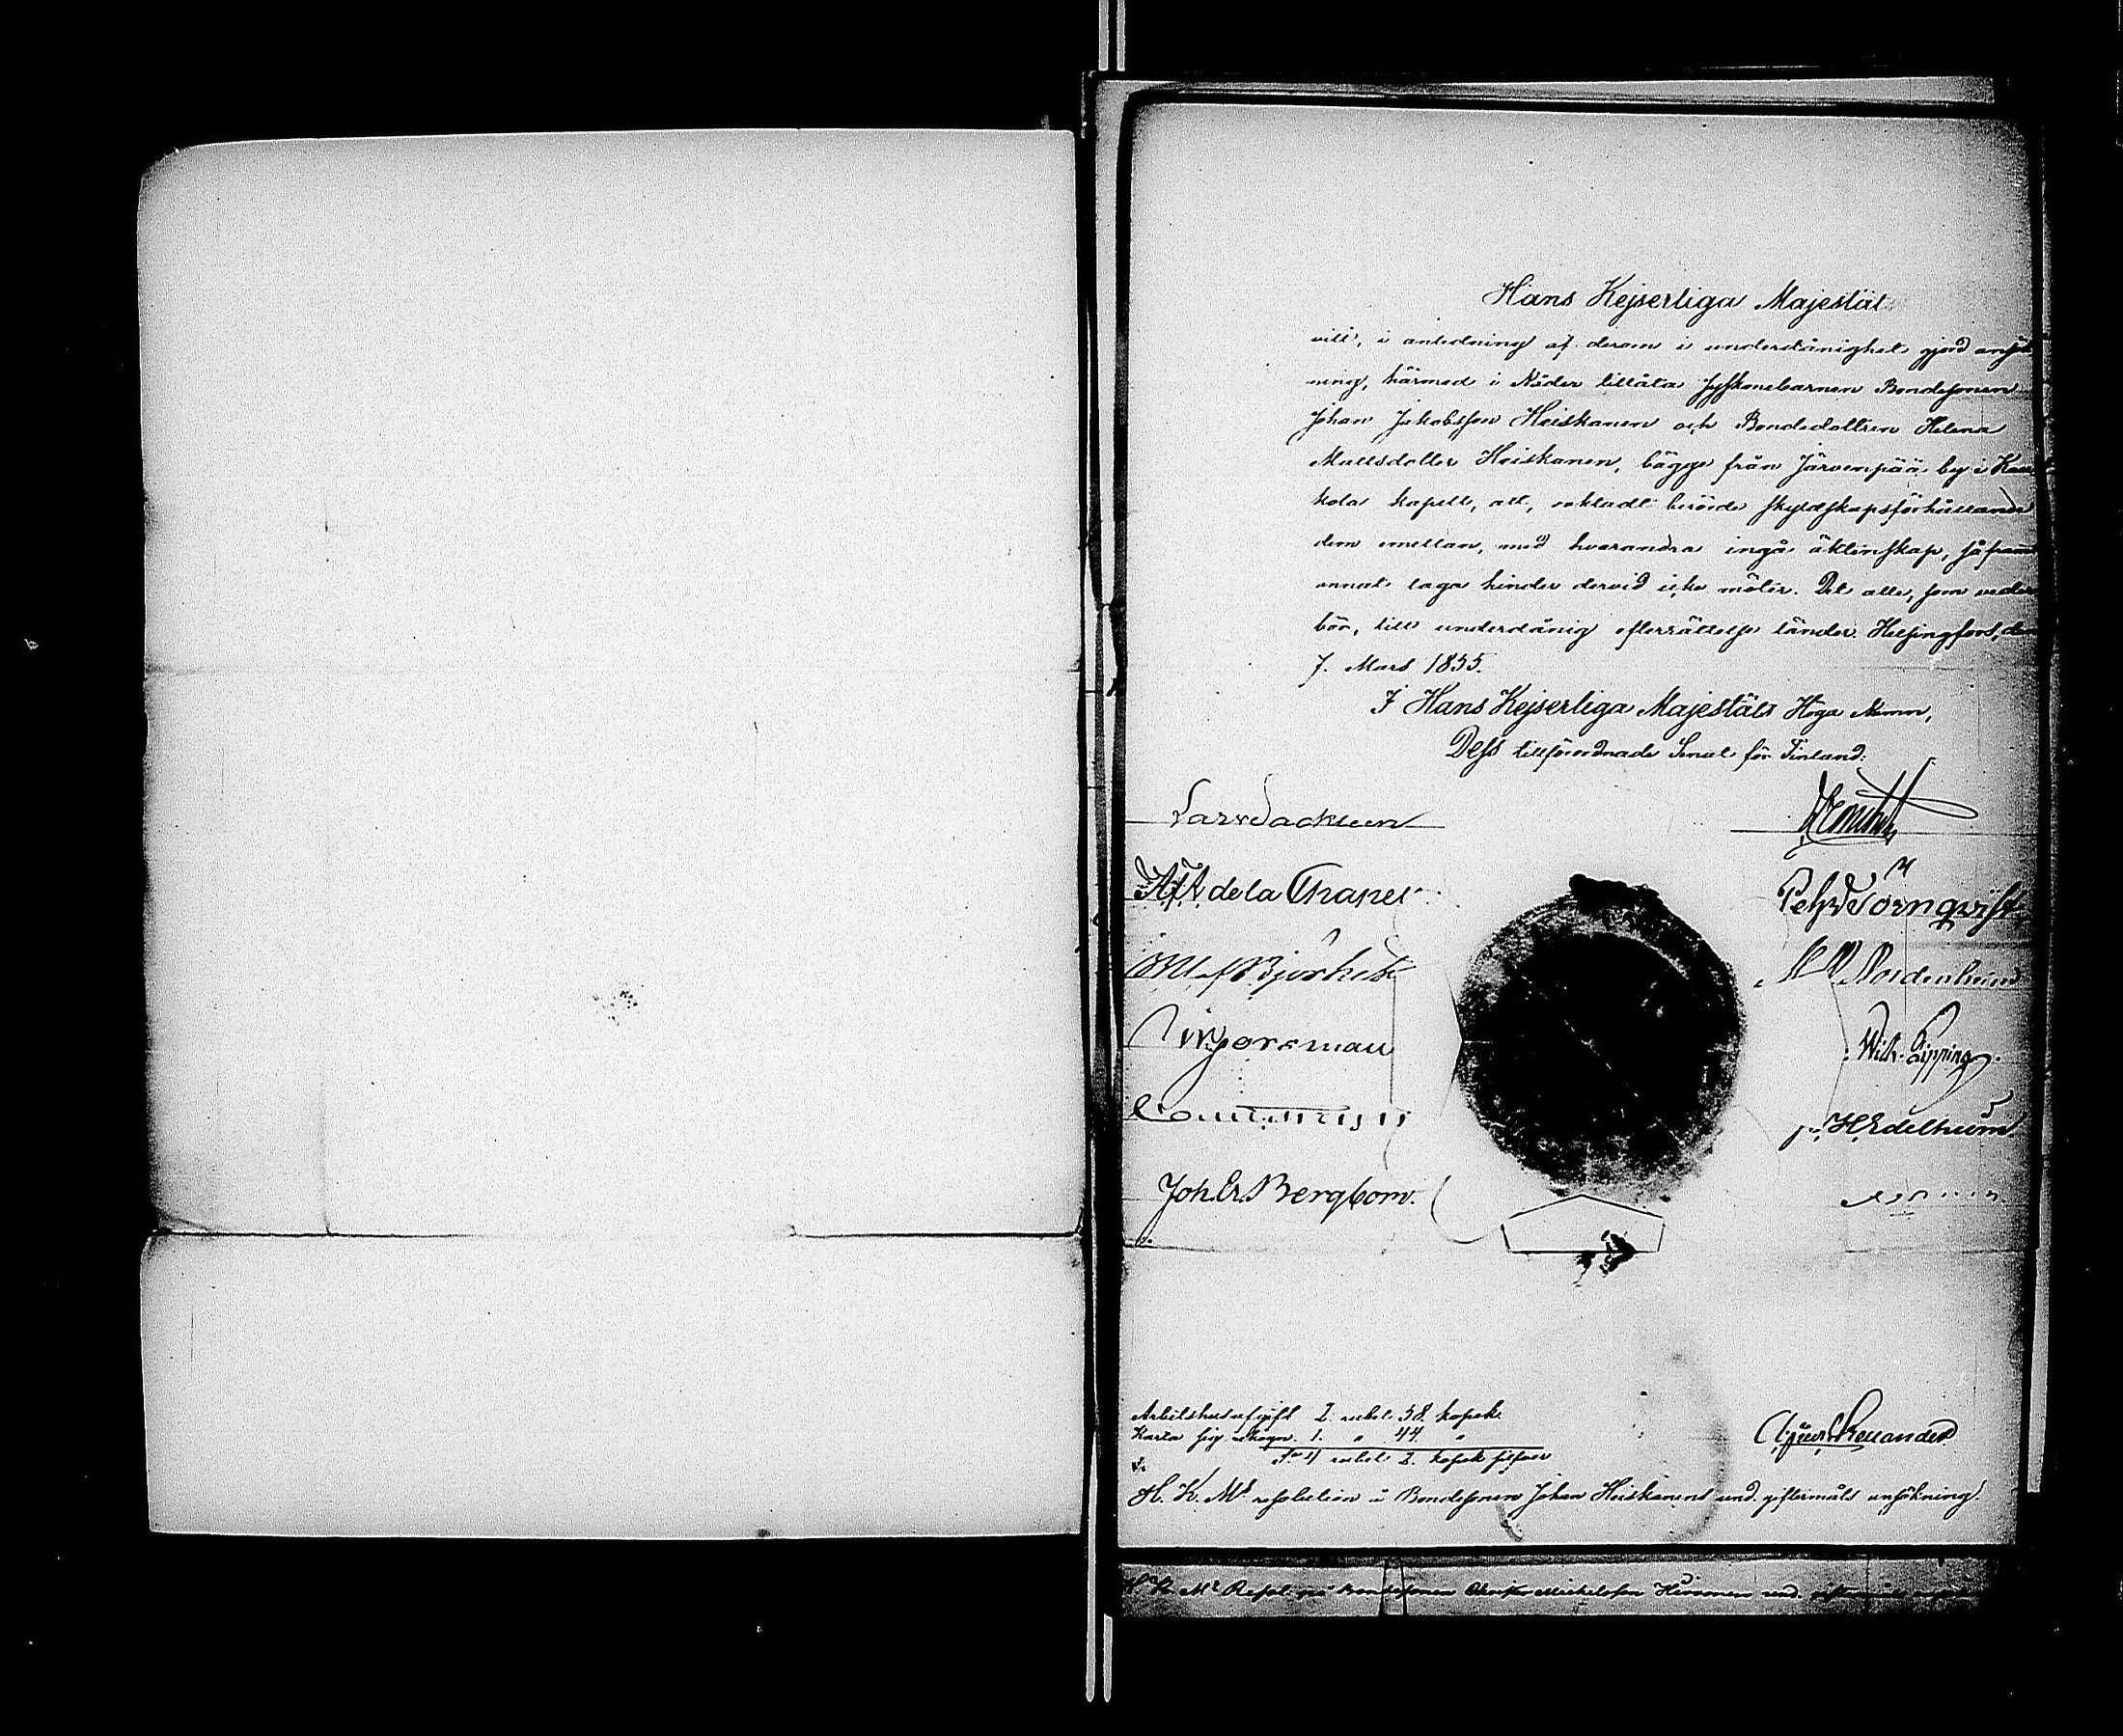 Hans Kejserliga Majestät
vill, i anledning af derom i underdånighet gjord ansök
ning, härmed i Nåder tillåta Syskonebarnen Bondesonen
Johan Jakobsson Heiskanen och Bondedottren Helena
Mattsdotter Heiskanen, bägge från Järvenpää by i
kola kapell, att, oaktadt berörde skyldskapsförhållande
dem emellan, med hvarandra ingå äktenskap, så framt
annat laga hinder dervid icke möter. Det alle, som veder
bör, till underdånig efterrättelse länder. Helsingfors, den
7. Mars 1855.
I Hans Kejserliga Majestäts Höga Namn,
Dess tillförordnade Senat för Finland:
Lars Sackleen
de la Chapelle
Pehr Törnqvist
af Björksten
Nordenheim
Wilh. Pipping
H Edelheim
Joh. Er. Bergbom.
Arbetshusafgift 2. rubel 58. kopek.
Karta sig. rekogn. 1. " 44 "
S:a 4 rubel 2. kopek silfver
H. K. M:ts resolution å Bondesonen Johan Heiskanens und. giftermåls ansökning.
H K M:ts Resol: på Bondesonen Michelsson und.